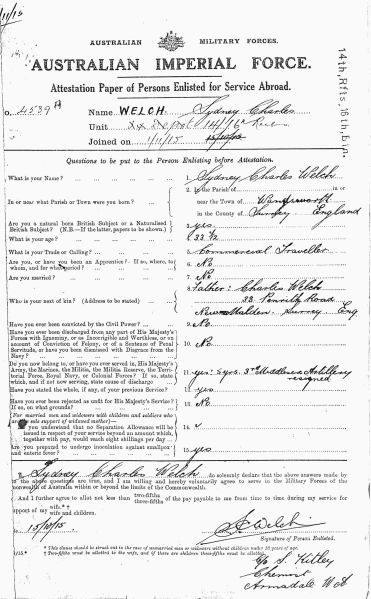 1/11/15
AUSTRALIAN MILITARY FORCES.
AUSTRALIAN IMPERIAL FORCE.
Attestation Paper of Persons Enlisted for Service Abroad.
14th, Rfts, 16th, Bn
No. 4539 A Name WELCH, Sydney Charles
Unit 14/16
Joined on 1/11/15
Questions to be put to the Person Enlisting before Attestation.
What is your Name? 1. Sydney Charles Welch
In or near what Parish or Town were you born? 2. In the Parish of in or
near the Town of Wandsworth
in the County of Surrey England
Are you a natural born British Subject or a Naturalised British Subject? (N.B.—If the latter, papers to be shown.) 3. yes
What is your age? 4. 33
What is your Trade or Calling? 5. Commercial Traveller
Are you, or have you been an Apprentice? If so, where, to whom, and for what period? 6. No
Are you married? 7. No
Who is your next of kin? (Address to be stated) 8. Father: Charles Welch
33 Road
New Malden Surrey Eng
Have you ever been convicted by the Civil Power? 9. No
Have you ever been discharged from any part of His Majesty's
Forces with Ignominy, or as Incorrigible and Worthless, or on
account of Conviction of Felony, or of a Sentence of Penal
Servitude, or have you been dismissed with Disgrace from the
Navy? 10. No
Do you now belong to, or have you ever served in, His Majesty's
Army, the Marines, the Militia, the Militia Reserve, the Territorial
Force, Royal Navy, or Colonial Forces? If so, state
which, and if not now serving, state cause of discharge 11. yes. 5 yrs. 3rd Middlesex Artillery
resigned
Have you stated the whole, if any, of your previous Service? 12. yes
Have you ever been rejected as unfit for His Majesty's Service? If
so, on what grounds? 13. No
(For married men and widowers with children and soldiers who
are sole support of widowed mother)—
Do you understand that no Separation Allowance will be
issued in respect of your service beyond an amount which,
together with pay, would reach eight shillings per day 14.
Are you prepared to undergo inoculation against smallpox and
enteric fever? 15. yes
I, Sydney Charles Welch do solemnly declare that the above answers made by
me to the above questions are true, and I am willing and hereby voluntarily agree to serve in the Military Forces of the
Commonwealth of Australia within or beyond the limits of the Commonwealth.
And I further agree to allot not less than two-fifths three-fifths of the pay payable to me from time to time during my service for
support of my wife.*†
wife and children.
15/10/15 S C Welch
Signature of Person Enlisted.
* This clause should be struck out in the case of unmarried men or widowers without children under 18 years of age.
† Two-fifths must be allotted to the wife, and if there are children three-fifths must be allotted.
c/o S. Kitley
Chemist
Armadale W A